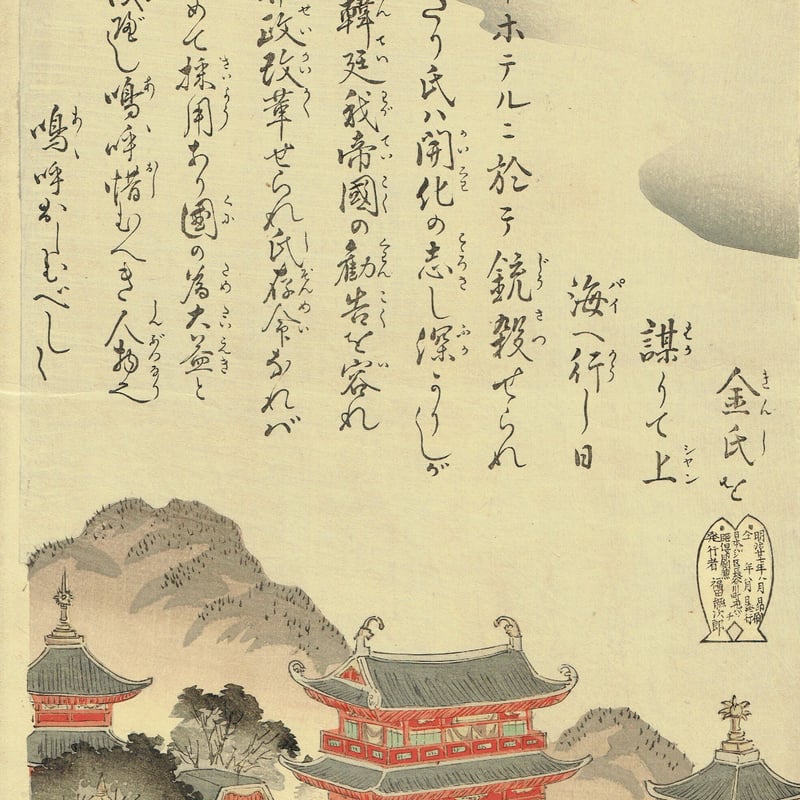 金氏を
謀りて上
海へ行し日
ホテルニ於テ銃殺せられ
たり氏ハ開化の志し深かりしが
韓廷我帝國の勧告を容れ
政改革せられ氏存命なれバ
めて採用あり國の為大益と
嗚呼惜むへき人物也
嗚呼おしむべし〱
明治廿七年八月 日印刷
仝 年 八月 日発行
発行者 福田